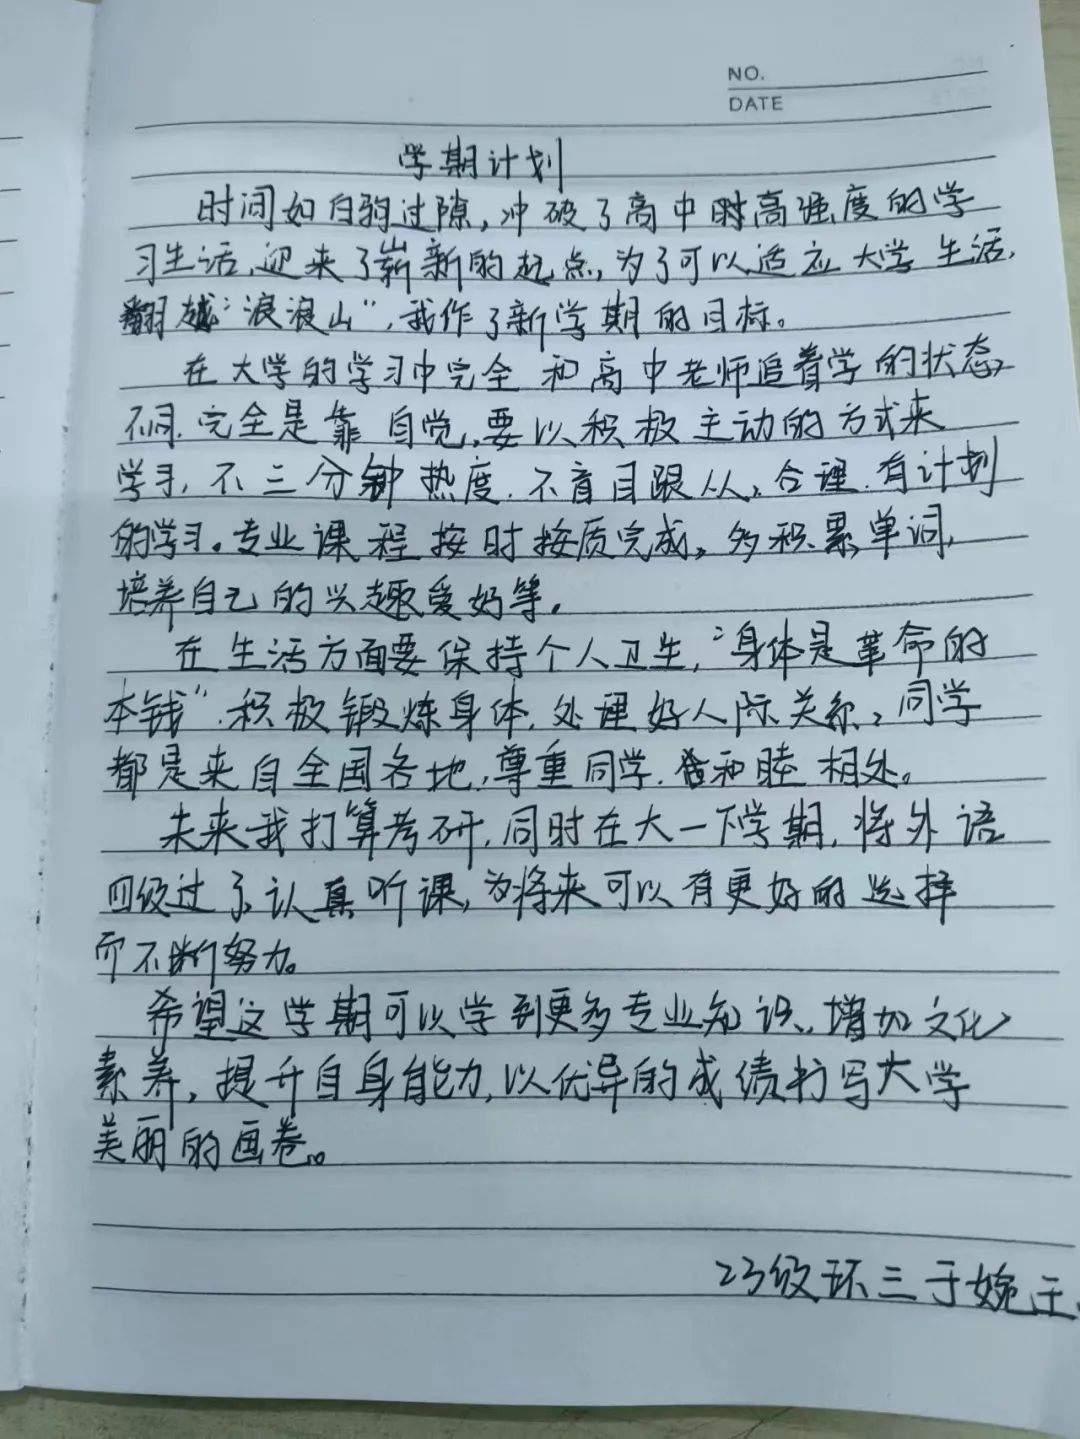 NO.
DATE
学期计划
时间如白驹过隙,冲破了高中时高强度的学
习生活,迎来了崭新的起点,为了可以适应大学生活,
翻越“浪浪山”,我作了新学期的目标。
在大学的学习中完全和高中老师追着学的状态
不同,完全是靠自觉,要以积极主动的方式来
学习,不三分钟热度,不盲目跟从,合理,有计划
的学习。专业课程按时按质完成,多积累单词,
培养自己的兴趣爱好等。
在生活方面要保持个人卫生,“身体是革命的
本钱”,积极锻炼身体,处理好人际关系,同学
都是来自全国各地,尊重同学,和睦相处。
未来我打算考研,同时在大一下学期,将外语
四级过了,认真听课,为将来可以有更好的选择
而不断努力。
希望这学期可以学到更多专业知识,增加文化
素养,提升自身能力,以优异的成绩书写大学
美丽的画卷。
23级环三于婉